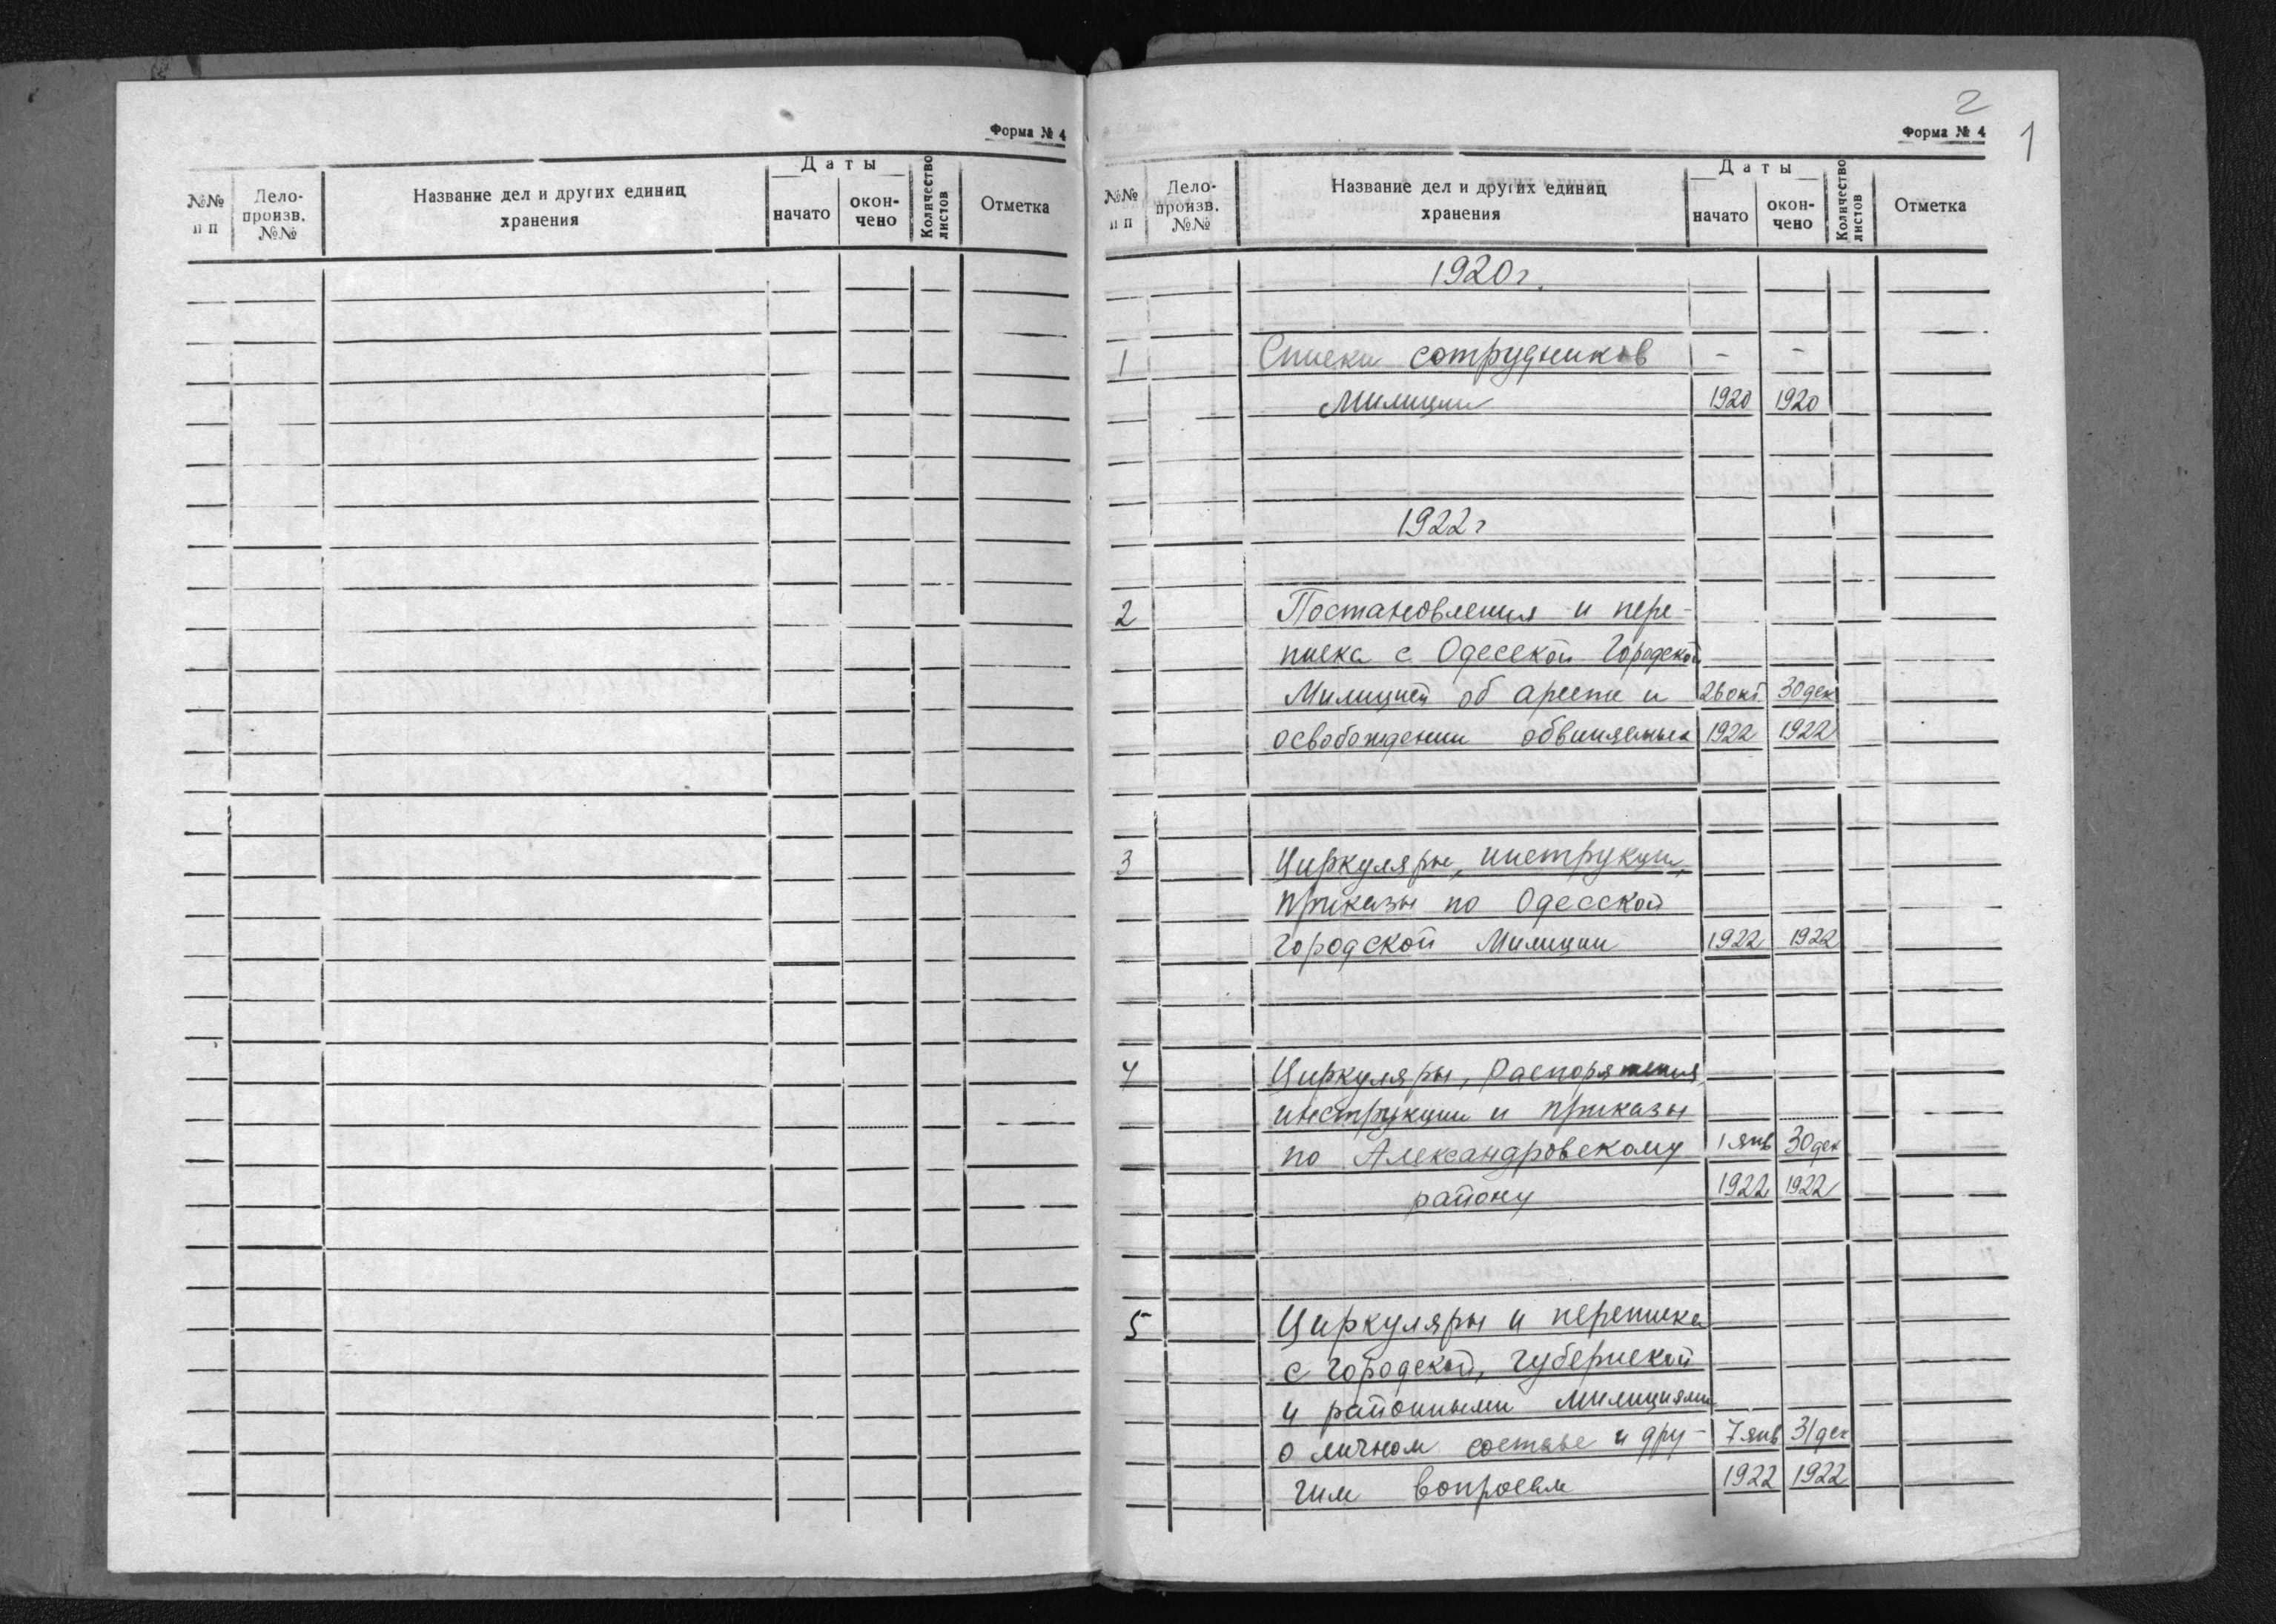 Форма № 4
№№ п п
Дело-произв. №№
Название дел и других единиц хранения
Даты
начато
окон-чено
Количество листов
Отметка
2
1
Форма № 4
№№ п п
Дело-произв. №№
Название дел и других единиц хранения
Даты
начато
окон-чено
Количество листов
Отметка
1920г.
1 Списки сотрудников - -
Милиции 1920 1920
1922г
2 Постановления и пере-
писка с Одесской Городской
Милицией об аресте и 26 окт 30 дек
освобождении обвиняемых 1922 1922
3 Циркуляры, инструкции,
приказы по Одесской
Городской Милиции 1922 1922
4 Циркуляры, Распоряжения
инструкции и приказы
по Александровскому 1 янв 30 дек
району 1922 1922
5 Циркуляры и переписка
с Городской, Губернской
и районными Милициями
о личном составе и дру- 7 янв 31 дек
гим вопросам 1922 1922